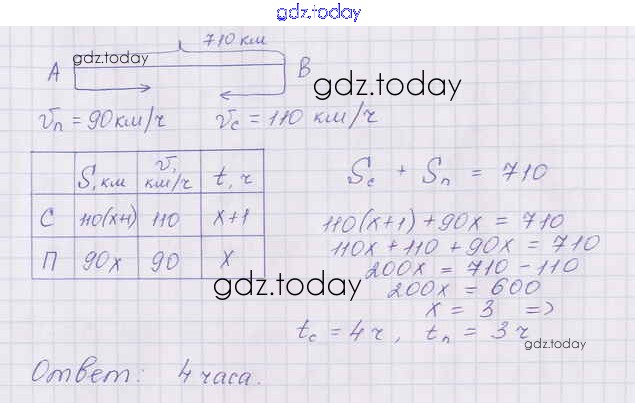 gdz.today
710 км
gdz.today
A B
gdz.today
vп = 90 км/ч vс = 110 км/ч
S, км v, км/ч t, ч
С 110(x+1) 110 x+1
П 90x 90 x
Sс + Sп = 710
110(x+1) + 90x = 710
110x + 110 + 90x = 710
200x = 710 - 110
200x = 600
x = 3 =>
tс = 4 ч, tп = 3 ч
gdz.today
gdz.today
Ответ: 4 часа.